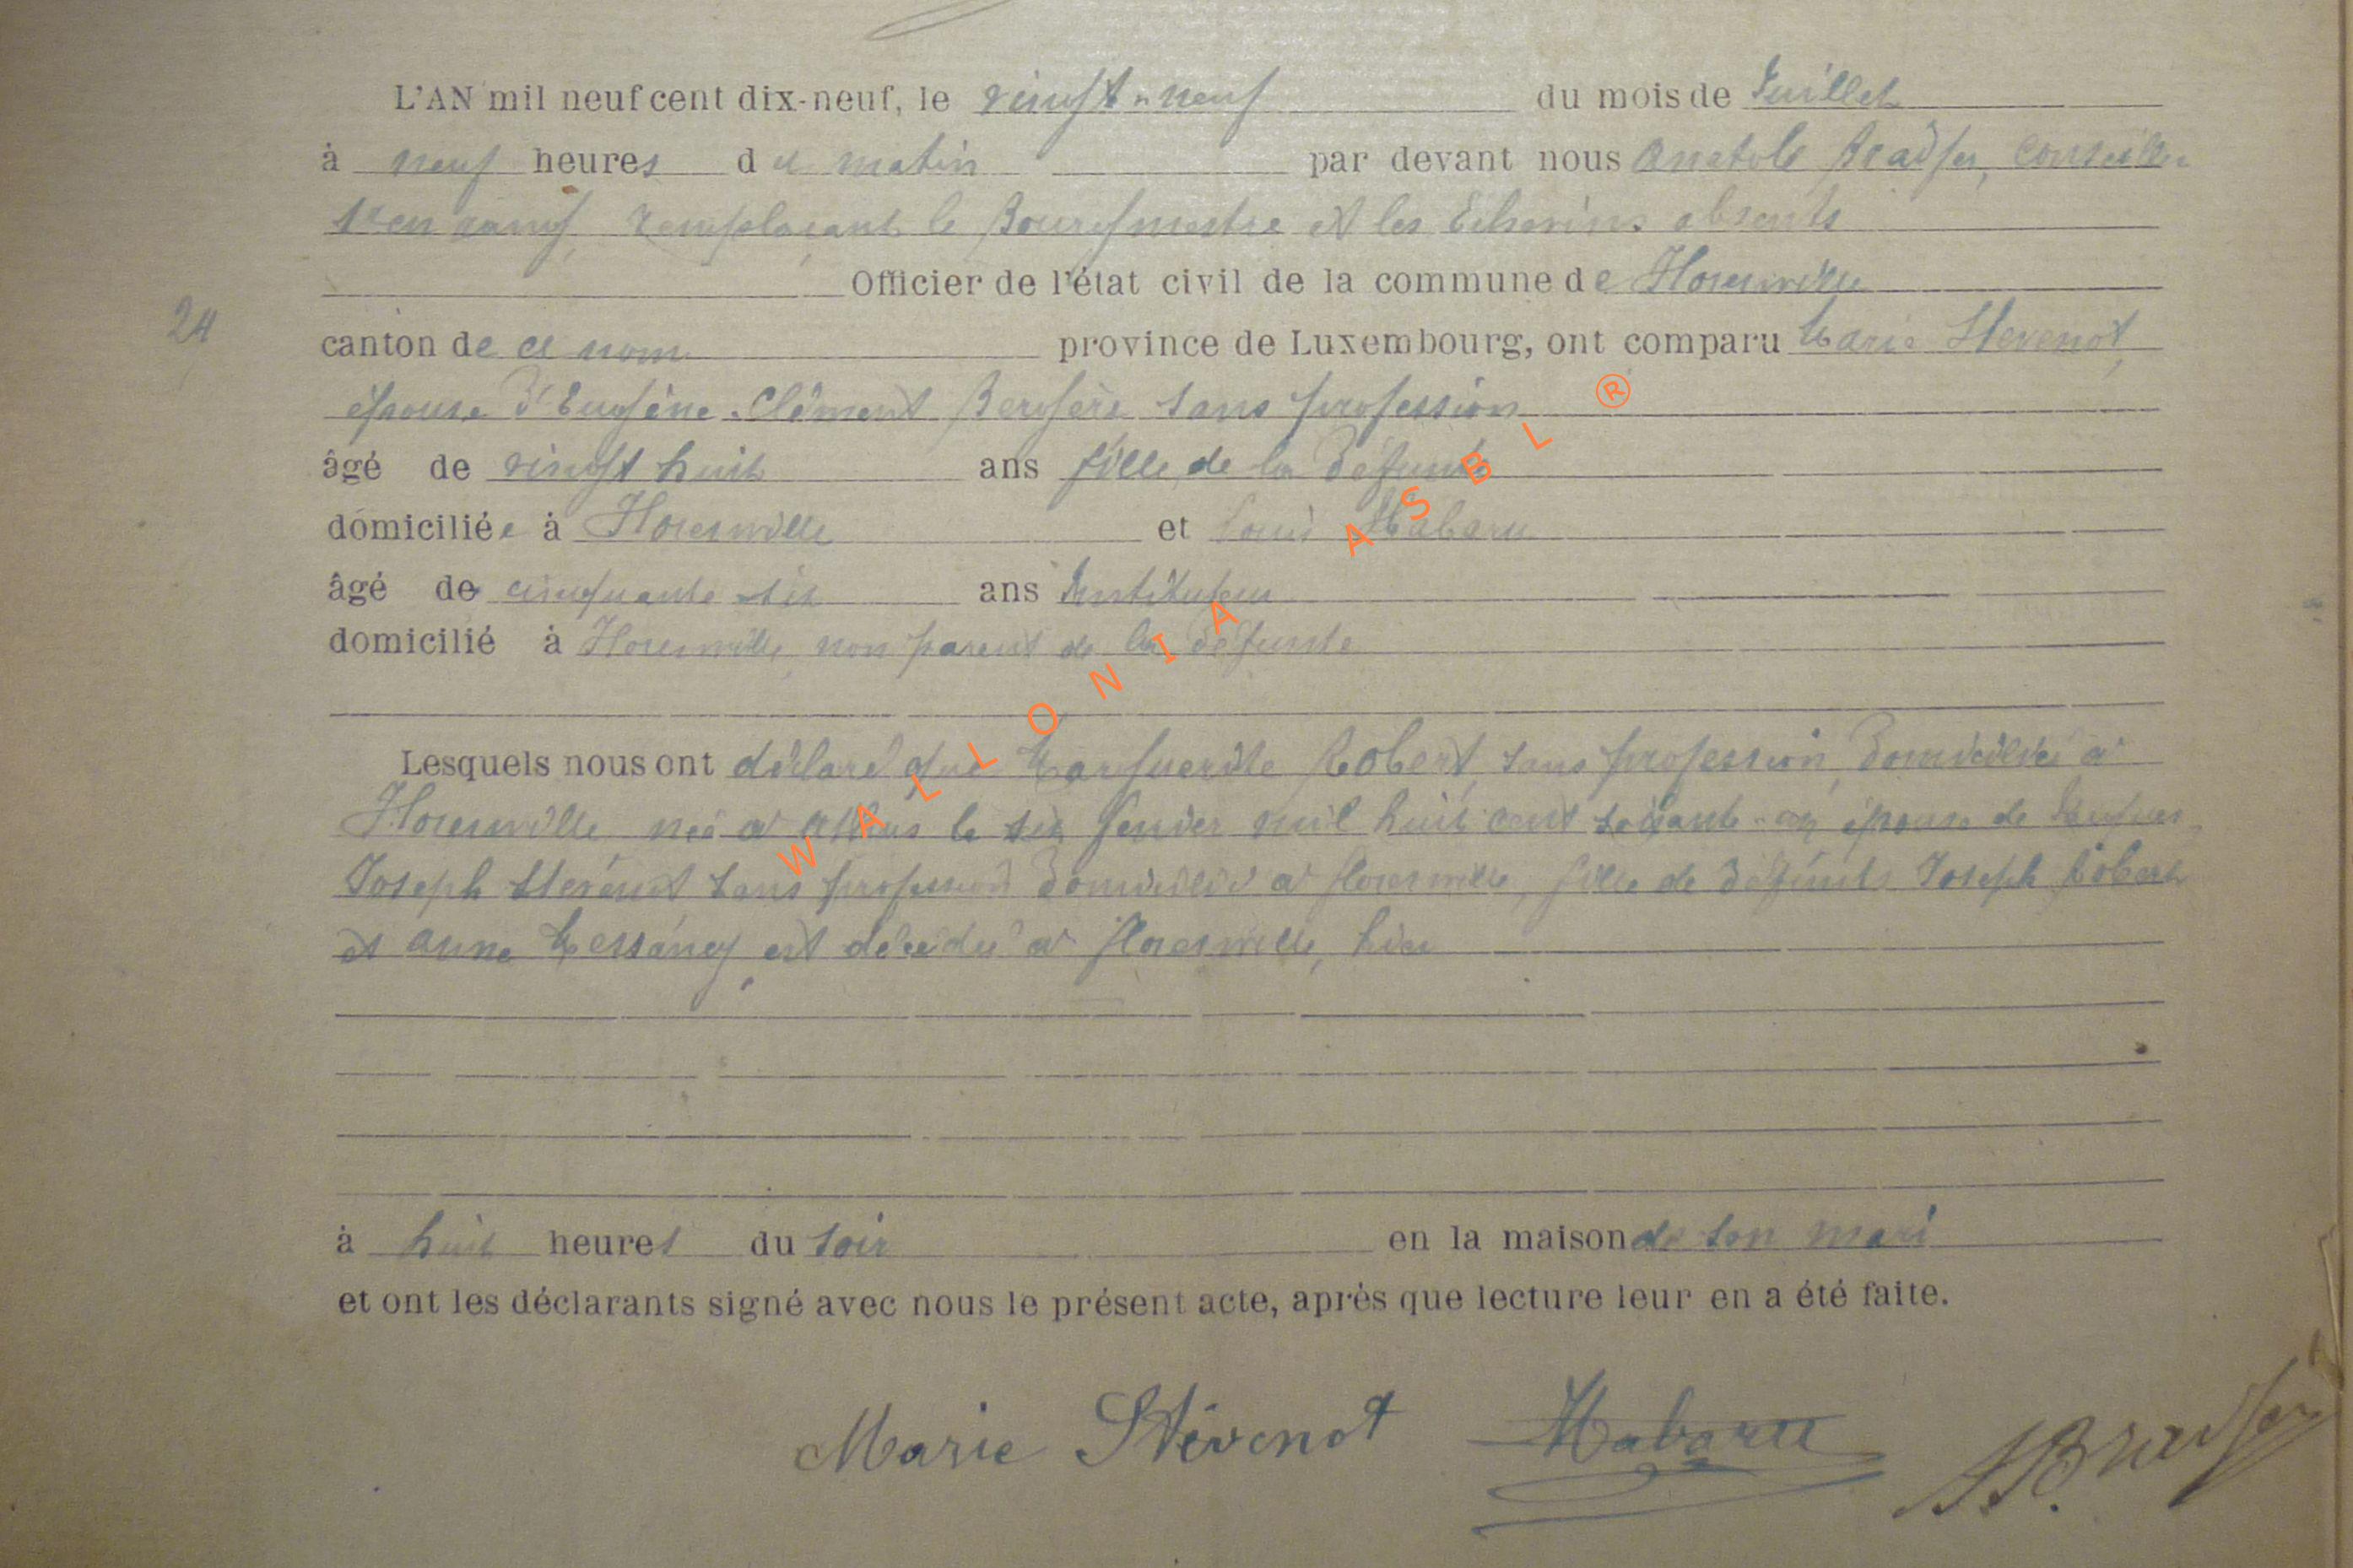 L'AN mil neuf cent dix-neuf, le vingt-neuf du mois de Juillet
à neuf heures du matin par devant nous Anatole Bradfer, conseiller
1er en rang, remplaçant le Bourgmestre et les Echevins absents
Officier de l'état civil de la commune de Florenville
24
canton de ce nom province de Luxembourg, ont comparu Marie Stevenot,
épouse d'Eugène-Clément Bergère sans profession
âgé de vingt huit ans fille de la défunte
domiciliée à Florenville et Louis Habaru
âgé de cinquante-six ans Instituteur
domicilié à Florenville, non parent de la défunte
Lesquels nous ont déclaré que Marguerite Robert, sans profession, domiciliée à
Florenville, née à Athus le six Janvier mil huit cent soixante-un, épouse de
Joseph Stévenot sans profession domicilié à Florenville, fille de défunts Joseph Robert
et Anne Messancy est décédée à Florenville, hier
à huit heures du soir en la maison de son mari
et ont les déclarants signé avec nous le présent acte, après que lecture leur en a été faite.
Marie Stévenot Habaru ABradfer
WALLONIA ASBL ®